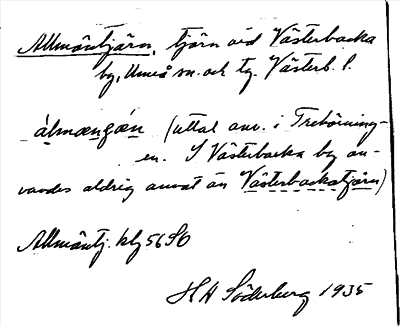 Allmäntjärn, tjärn vid Västerbacka
by, Umeå sn. och tg. Västerb. l.
ålmæŋɡæ̀n (uttal anv. i Trehörning-
en. I Västerbacka by an-
vandes aldrig annat än Västerbackatjärn)
Allmäntj. kbj 56 SO
H H Söderberg 1935